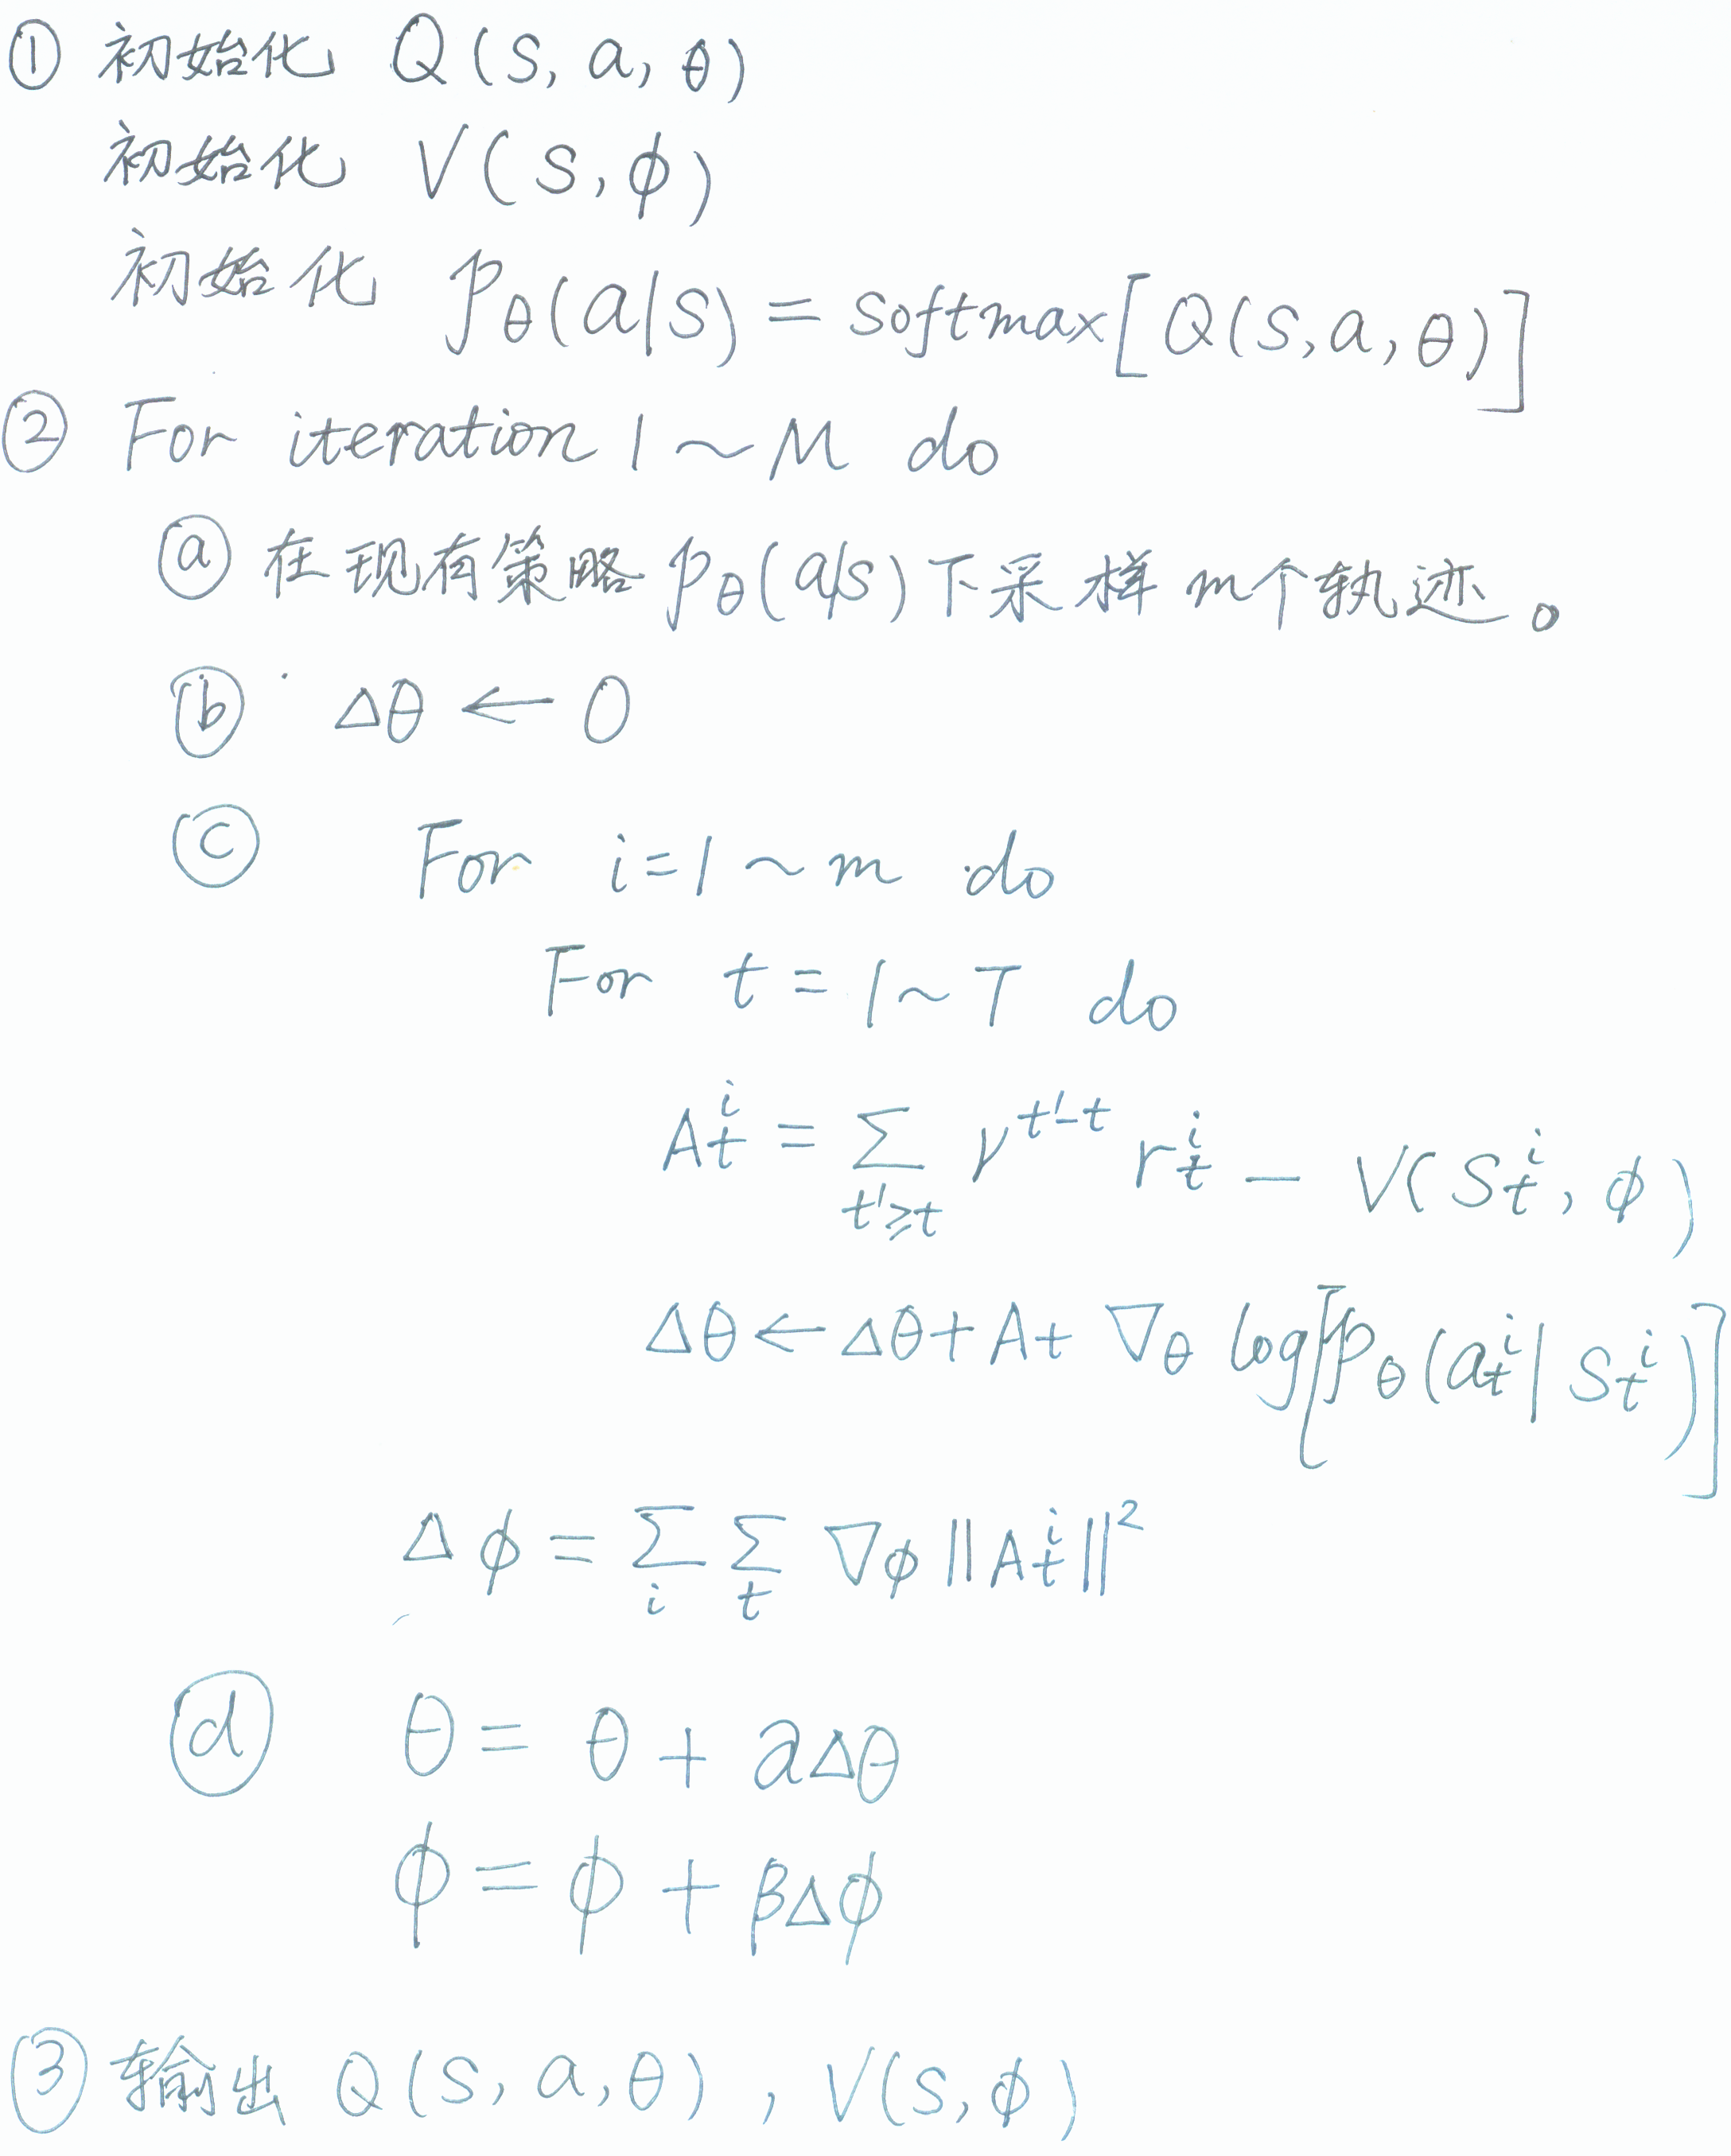 ① 初始化 Q(s, a, θ)
初始化 V(s, ϕ)
初始化 p_θ(a|s) = softmax[Q(s, a, θ)]
② For iteration 1 ~ M do
ⓐ 在现有策略 p_θ(a|s) 下采样 m个轨迹。
ⓑ Δθ ← 0
ⓒ For i=1 ~ m do
For t = 1 ~ T do
A_t^i = Σ_{t'≥t} γ^{t'-t} r_t^i - V(s_t^i, ϕ)
Δθ ← Δθ + A_t ∇_θ log[p_θ(a_t^i | s_t^i)]
Δϕ = Σ_i Σ_t ∇_ϕ ||A_t^i||²
ⓓ θ = θ + aΔθ
ϕ = ϕ + βΔϕ
③ 输出 Q(s, a, θ), V(s, ϕ)